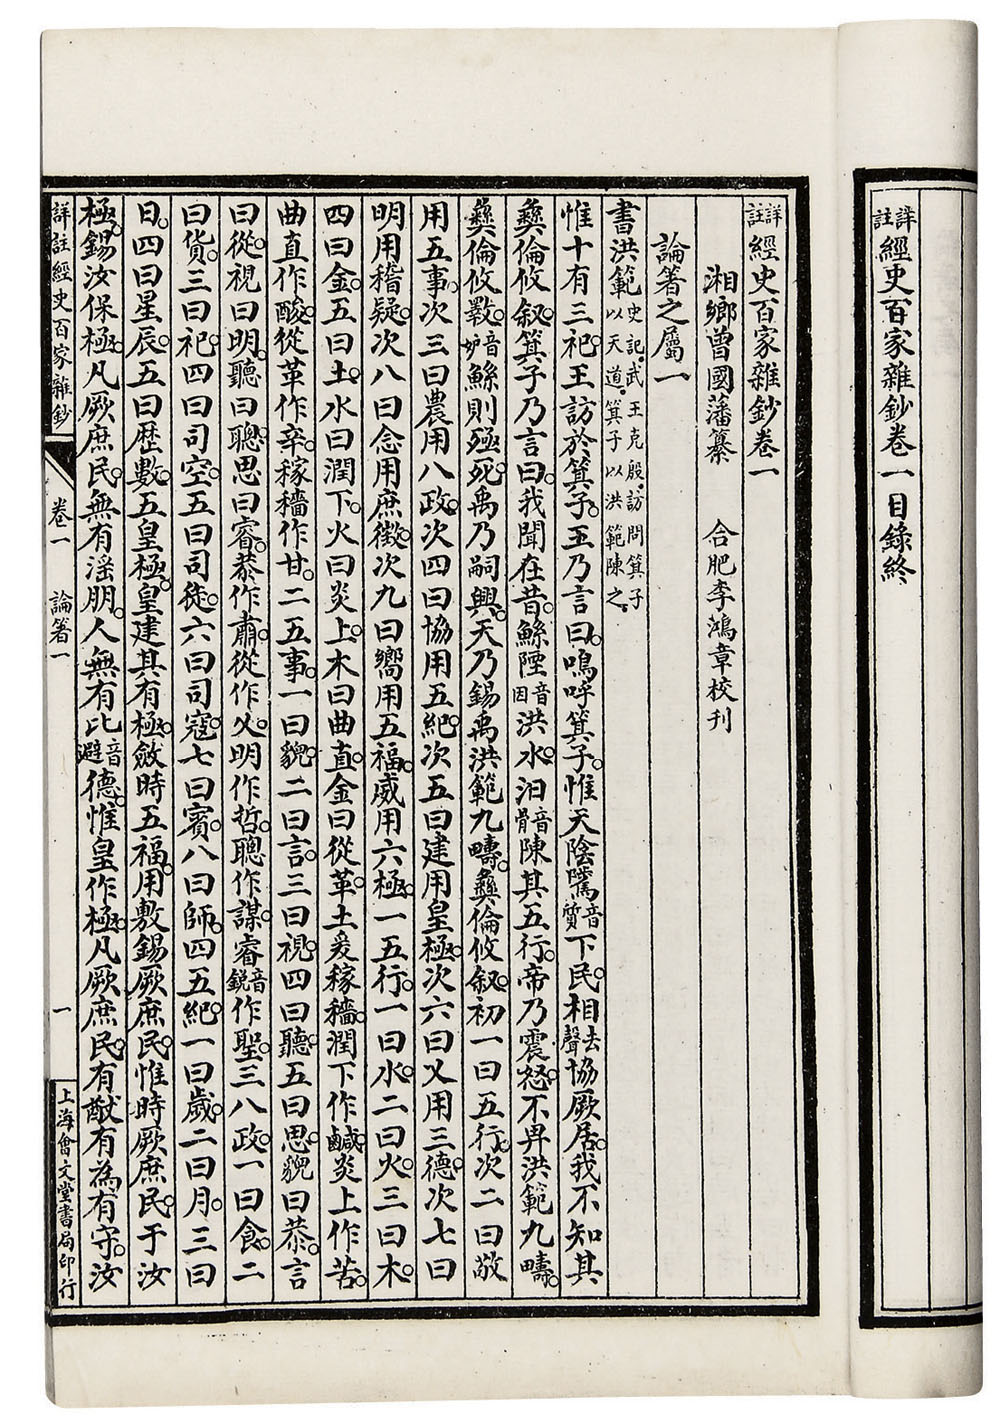 詳註經史百家雜鈔卷一目錄終
詳註經史百家雜鈔卷一
湘鄉曾國藩纂 合肥李鴻章校刊
論著之屬一
書洪範史記。武王克殷。訪問箕子以天道。箕子以洪範陳之。
惟十有三祀。王訪於箕子。王乃言曰。嗚呼箕子。惟天陰騭音質下民。相去聲協厥居。我不知其
彝倫攸叙。箕子乃言曰。我聞在昔。鯀陻音因洪水。汩音骨陳其五行。帝乃震怒。不畀洪範九疇。
彝倫攸斁。音妒鯀則殛死。禹乃嗣興。天乃錫禹洪範九疇。彝倫攸叙。初一曰五行。次二曰敬
用五事。次三曰農用八政。次四曰協用五紀。次五曰建用皇極。次六曰乂用三德。次七曰
明用稽疑。次八曰念用庶徵。次九曰嚮用五福。威用六極。一五行。一曰水。二曰火。三曰木。
四曰金。五曰土。水曰潤下。火曰炎上。木曰曲直。金曰從革。土爰稼穡。潤下作鹹。炎上作苦。
曲直作酸。從革作辛。稼穡作甘。二五事。一曰貌。二曰言。三曰視。四曰聽。五曰思。貌曰恭。言
曰從。視曰明。聽曰聰。思曰睿。恭作肅。從作乂。明作哲。聰作謀。睿音銳作聖。三八政。一曰食。二
曰貨。三曰祀。四曰司空。五曰司徒。六曰司寇。七曰賓。八曰師。四五紀。一曰歲。二曰月。三曰
日。四曰星辰。五曰歷數。五皇極。皇建其有極。斂時五福。用敷錫厥庶民。惟時厥庶民。于汝
極。錫汝保極。凡厥庶民。無有淫朋。人無有比音避德。惟皇作極。凡厥庶民。有猷有為有守。汝
詳註經史百家雜鈔 卷一 論著一 一 上海會文堂書局印行